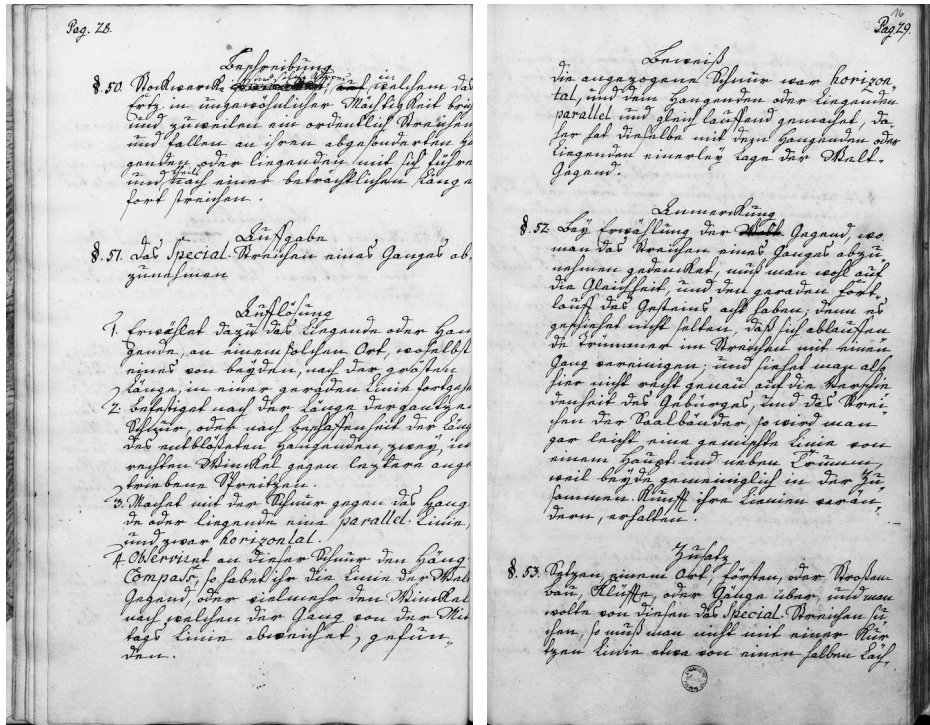 Pag. 28.
Beschreibung
§. 50. Stockwerck in welchem das
Ertz in ungewöhnlicher Mächtigkeit brich
und zuweilen ein ordentlich Streichen
und fallen an ihren abgesonderten
genden oder liegenden mit sich führe
und theils nach einer beträchtlichen Länge
fort streichen.
Auffgabe
§. 51. Das Special-Streichen eines Ganges ab,
zunehmen
Auflösung
1. Erwählet dazu das Liegende oder Han
gende, an einem solchen Ort, woselbst
eines von beyden, nach der grösten
Länge, in einer geraden Linie fortgehe
2. Befestiget nach der Länge der gantzen
Schnur, oder nach Beschaffenheit der Läng
des entblößeten Hangenden, zwey, im
rechten Winckel gegen letztere ange
triebene Spreitzen.
3. Machet mit der Schnur gegen das Hang
de oder liegende eine parallel-Linie,
und zwar horizontal.
4. Observiret an dieser Schnur den Häng
Compass, so habet ihr die Linie der Welt
Gegend, oder vielmehr den Winckel
nach welchen der Gang von der Mit
tags Linie abweichet, gefun,
den.
16
Pag. 29.
Beweiß
Die angezogene Schnur war horizon,
tal, und dem Hangenden oder Liegenden
parallel und gleich lauffend gemachet, da,
her hat dieselbe mit dem Hangenden oder
Liegenden einerley Lage der Welt-
Gegend.
Anmerckung
§. 52. Bey Erwählung der Gegend, wo
man das Streichen eines Ganges abzu,
nehmen gedencket, muß man wohl auf
die Gleichheit, und den geraden Fort,
lauf des Gesteins acht haben; denn es
geschiehet nicht selten, daß sich ablauffen
de Trummer im Streichen mit einen
Gang vereinigen; und siehet man also
hier nicht recht genau auf die Verschie
denheit des Gebürges, und das Strei,
chen der Saalbänder, so wird man
gar leicht eine gemischte Linie von
einem Haupt und neben Trumm,
weil beyde gemeiniglich in der Zu
sammen Kunfft ihre Linien verän,
dern, erhalten.
Zusatz
§. 53. Setzen einem Ort, Försten, oder Stroßen
bau, Klüffte, oder Gänge über, und man
wolte von diesen das Special-Streichen su
chen, so muß man nicht mit einer Kur
tzen Linie etwa von einen halben Lach,